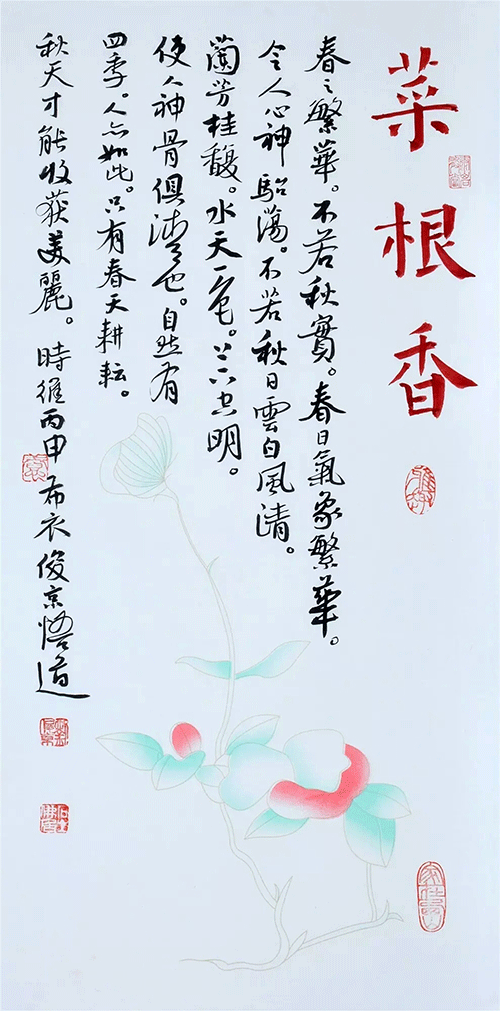 菜根香
春之繁華。不若秋實。春日氣象繁華。
令人心神駘蕩。不若秋日雲白風清。
蘭芳桂馥。水天一色。上下空明。
使人神骨俱清也。自然有
四季。人亦如此。只有春天耕耘。
秋天才能收获美麗。時維丙申布衣俊京悟道